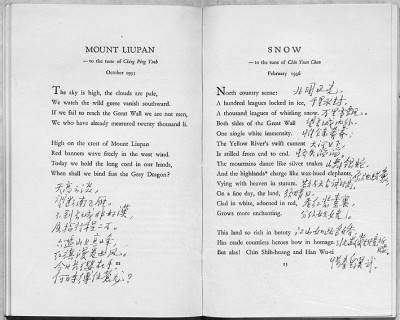 MOUNT LIUPAN
—to the tune of Ching Ping Yueh
October 1935
The sky is high, the clouds are pale,
We watch the wild geese vanish southward.
If we fail to reach the Great Wall we are not men,
We who have already measured twenty thousand li.
High on the crest of Mount Liupan
Red banners wave freely in the west wind.
Today we hold the long cord in our hands,
When shall we bind fast the Grey Dragon?
天高云淡,
望断南飞雁。
不到长城非好汉,
屈指行程二万。
六盘山上高峰,
红旗漫卷西风。
今日长缨在手,
何时缚住苍龙?
SNOW
—to the tune of Chin Yuan Chun
February 1936
North country scene: 北国风光,
A hundred leagues locked in ice, 千里冰封,
A thousand leagues of whirling snow. 万里雪飘。
Both sides of the Great Wall 望长城内外,
One single white immensity. 惟余莽莽;
The Yellow River's swift current 大河上下,
Is stilled from end to end. 顿失滔滔。
The mountains dance like silver snakes 山舞银蛇,
And the highlands* charge like wax-hued elephants,
Vying with heaven in stature.
On a fine day, the land, 须晴日,
Clad in white, adorned in red, 看红装素裹,
Grows more enchanting. 分外妖娆。
This land so rich in beauty 江山如此多娇,
Has made countless heroes bow in homage.
But alas! Chin Shih-huang and Han Wu-ti
23
惜秦皇汉武